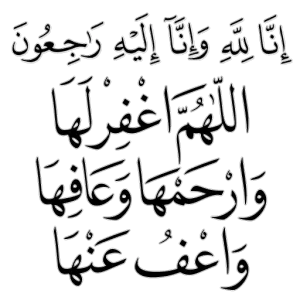 إِنَّا لِلَّهِ وَإِنَّآ إِلَيْهِ رَٰجِعُونَ
اللّٰهُمَّ اغْفِرْلَهَا
وَارْحَمْهَا وَعَافِهَا
وَاعْفُ عَنْهَا